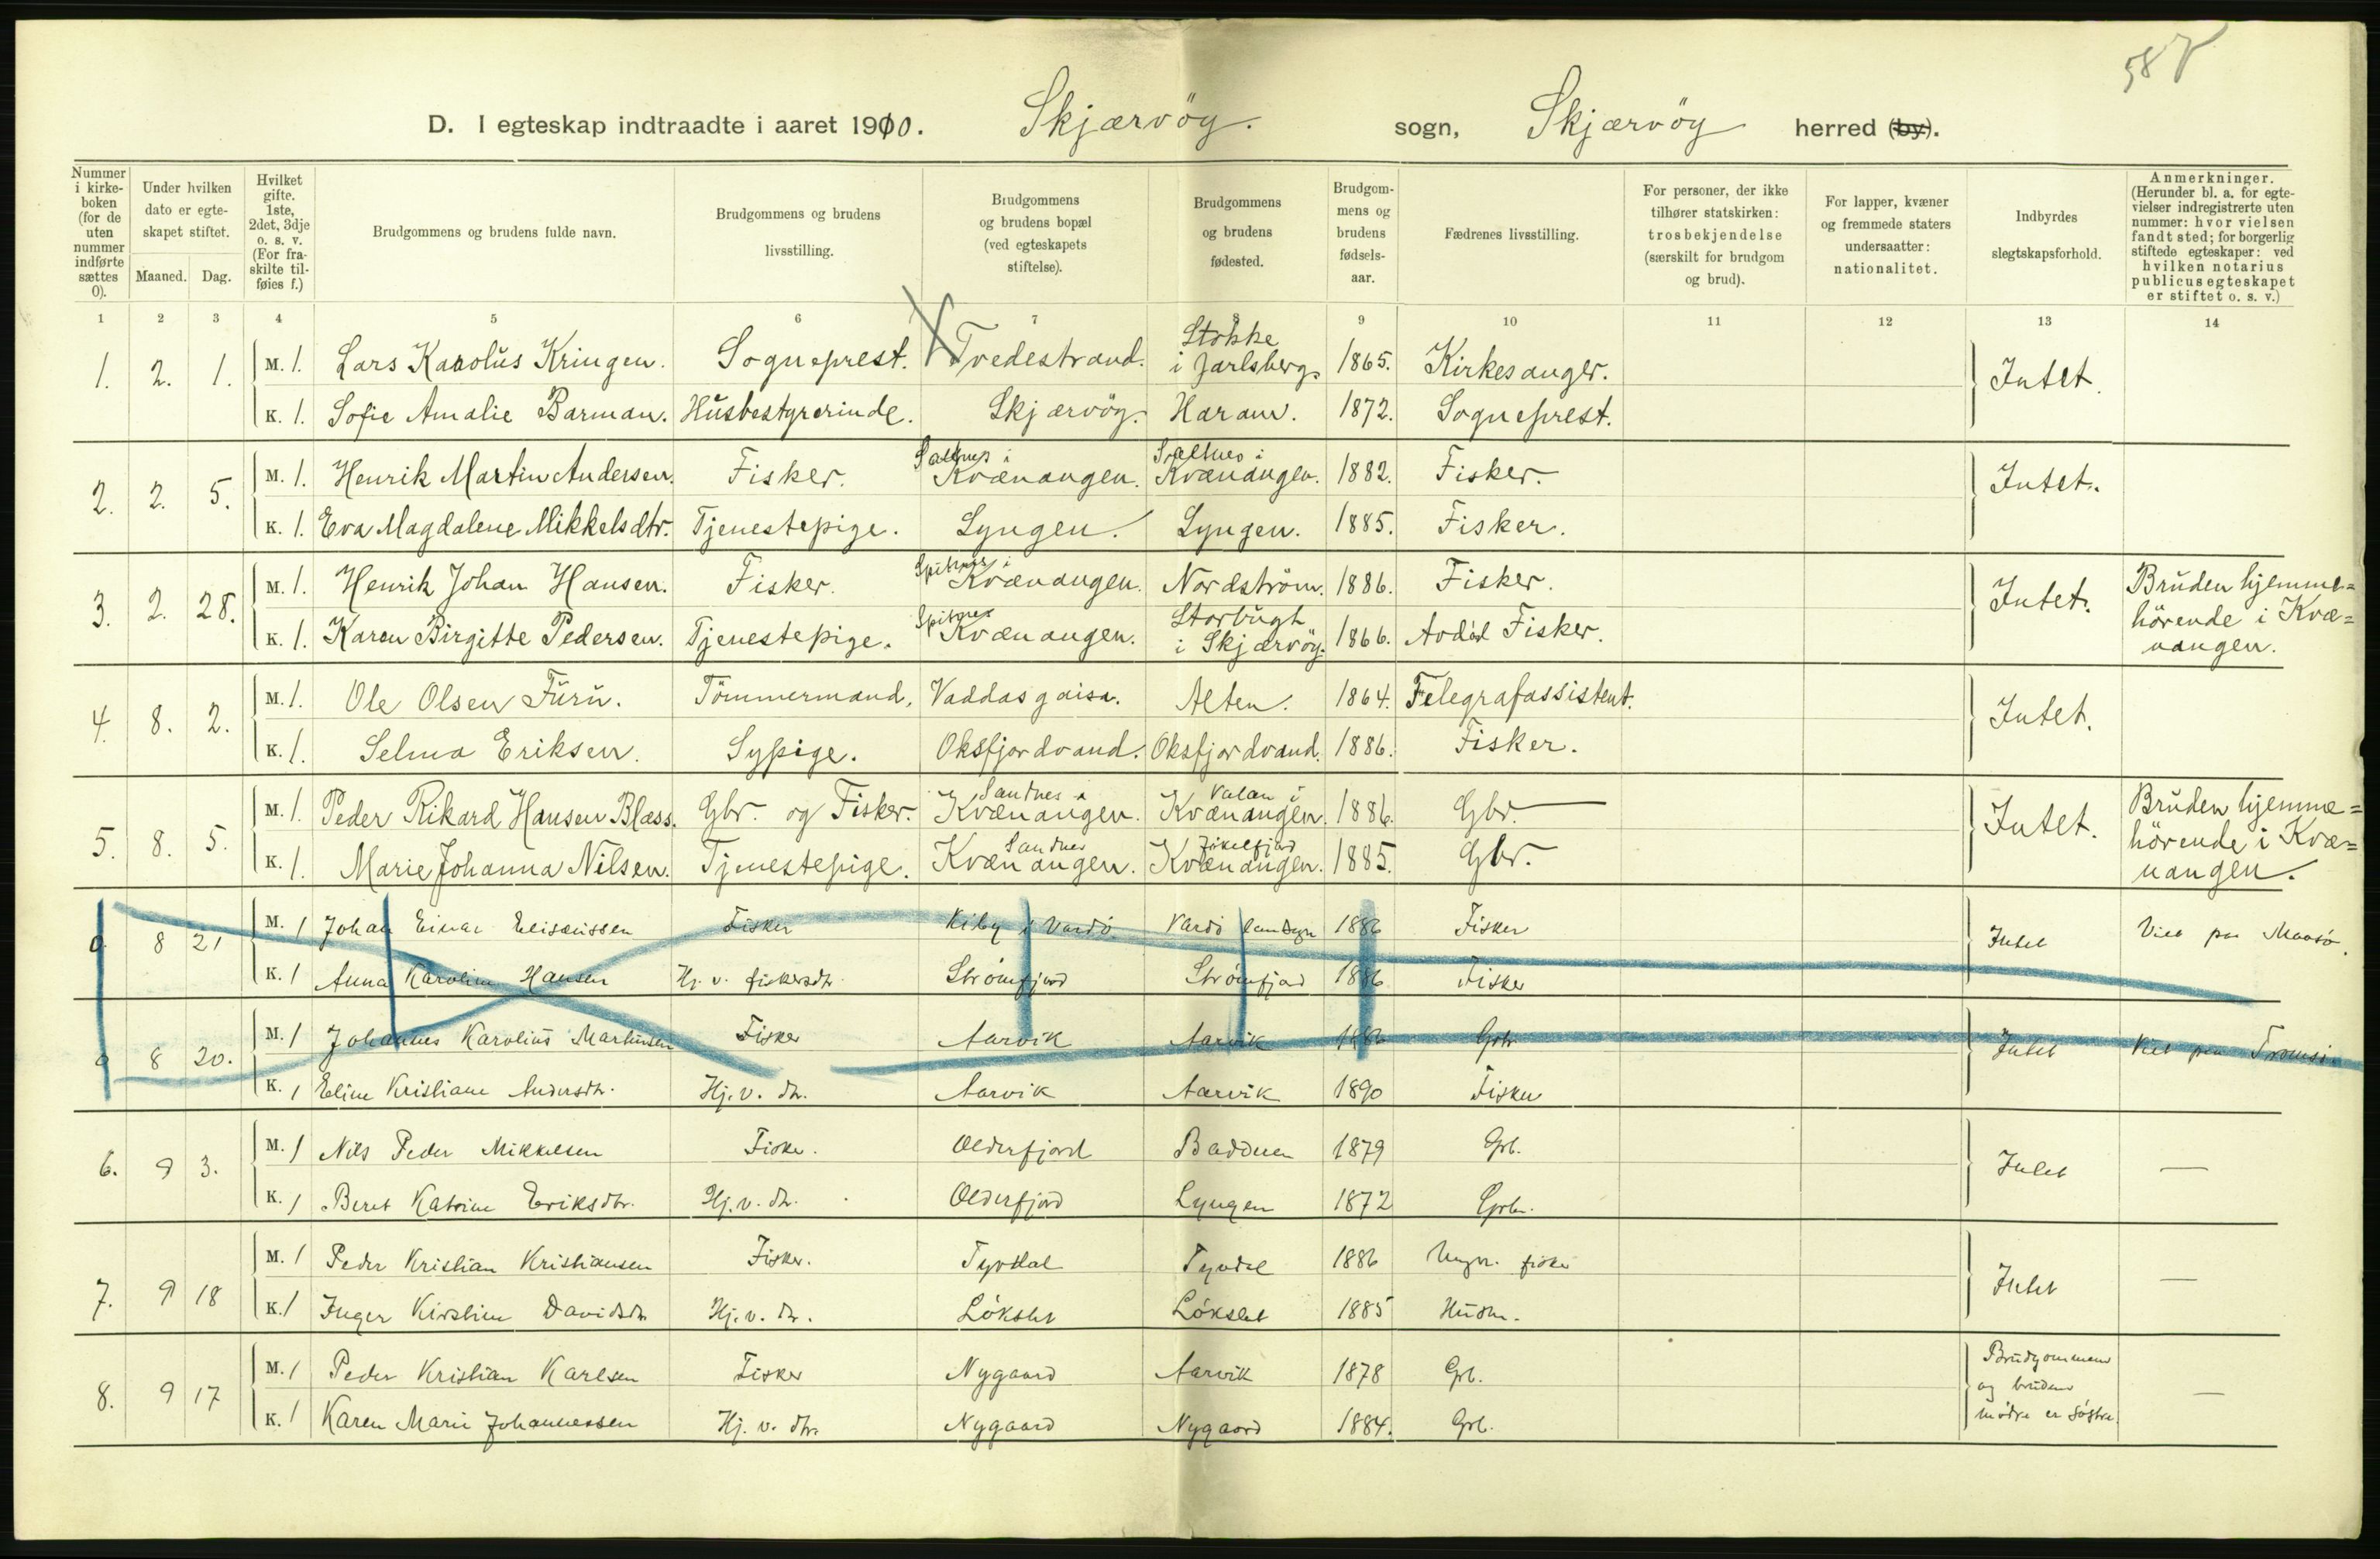 58
D. I egteskap indtraadte i aaret 1910. Skjærvöy. sogn, Skjærvöy herred (by).
Nummer i kirkeboken (for de uten nummer indførte sættes 0).
Under hvilken dato er egteskapet stiftet.
Maaned. Dag.
Hvilket gifte. 1ste, 2det, 3dje o. s. v. (For fraskilte tilføies f.)
Brudgommens og brudens fulde navn.
Brudgommens og brudens livsstilling.
Brudgommens og brudens bopæl (ved egteskapets stiftelse).
Brudgommens og brudens fødested.
Brudgommens og brudens fødselsaar.
Fædrenes livsstilling.
For personer, der ikke tilhører statskirken: trosbekjendelse (særskilt for brudgom og brud).
For lapper, kvæner og fremmede staters undersaatter: nationalitet.
Indbyrdes slegtskapsforhold.
Anmerkninger. (Herunder bl. a. for egtevielser indregistrerte uten nummer: hvor vielsen fandt sted; for borgerlig stiftede egteskaper: ved hvilken notarius publicus egteskapet er stiftet o. s. v.)
1 2 3 4 5 6 7 8 9 10 11 12 13 14
1. 2. 1. M. 1. Lars Karolus Kringen. Sogneprest. Tvedestrand. Stokke i Jarlsberg. 1865. Kirkesanger. Intet.
K. 1. Sofie Amalie Barman. Husbestyrerinde. Skjærvöy. Haram. 1872. Sogneprest.
2. 2. 5. M. 1. Henrik Martin Andersen. Fisker. Saltnes i Kvænangen. Saltnes i Kvænangen. 1882. Fisker. Intet.
K. 1. Eva Magdalene Mikkelsdtr. Tjenestepige. Lyngen. Lyngen. 1885. Fisker.
3. 2. 28. M. 1. Henrik Johan Hansen. Fisker. Spitnes i Kvænangen. Nordström. 1886. Fisker. Intet. Bruden hjemme=
hörende i Kvæ=
nangen.
K. 1. Karen Birgitte Pedersen. Tjenestepige. Spitnes Kvænangen. Storbugt i Skjærvöy. 1866. Avdöd Fisker.
4. 8. 2. M. 1. Ole Olsen Furu. Tömmermand. Vaddasgaisa. Alten. 1864. Telegrafassistent. Intet.
K. 1. Selma Eriksen. Sypige. Oksfjordvand. Oksfjordvand. 1886. Fisker.
5. 8. 5. M. 1. Peder Rikard Hansen Blæss. Gbr. og Fisker. Sandnes i Kvænangen. Valan i Kvænangen. 1886. Gbr. Intet. Bruden hjemme=
hörende i Kvæ=
nangen.
K. 1. Marie Johanna Nilsen. Tjenestepige. Sandnes Kvænangen. Jökelfjord Kvænangen. 1885. Gbr.
0 8 21 M. 1 Johan Einar Fisker Kiby i Vardö Vardö landsogn 1886 Fisker Intet Viet paa Maasö.
K. 1 Anna Karoline Hansen Hj. v. fiskersdtr. Strömfjord Strömfjord 1886 Fisker
0 8 20. M. 1 Johannes Karolius Martinsen Fisker Aarvik Aarvik 1886 Grb. Intet Viet paa Tromsö
K. 1 Eline Kristiane Andersdtr. Hj. v. dtr. Aarvik Aarvik 1890 Fisker
6. 9 3. M. 1 Nils Peder Mikkelsen Fisker. Olderfjord Badderen 1879 Grb. Intet —
K. 1 Beret Katrine Eriksdtr. Hj. v. dtr. Olderfjord Lyngen 1872 Grb.
7. 9 18 M. 1 Peder Kristian Kristiansen Fisker. Tyvdal Tyvdal 1886 fisker Intet —
K. 1 Inger Kirstine Davidsdtr Hj. v. dtr. Lökslet Lökslet 1885 Husm.
8. 9 17 M. 1 Peder Kristian Karlsen Fisker Nygaard Aarvik 1878 Grb. Brudgommens
og brudens
mödre er söstre. —
K. 1 Karen Marie Johannessen Hj. v. dtr. Nygaard Nygaard 1884. Grb.